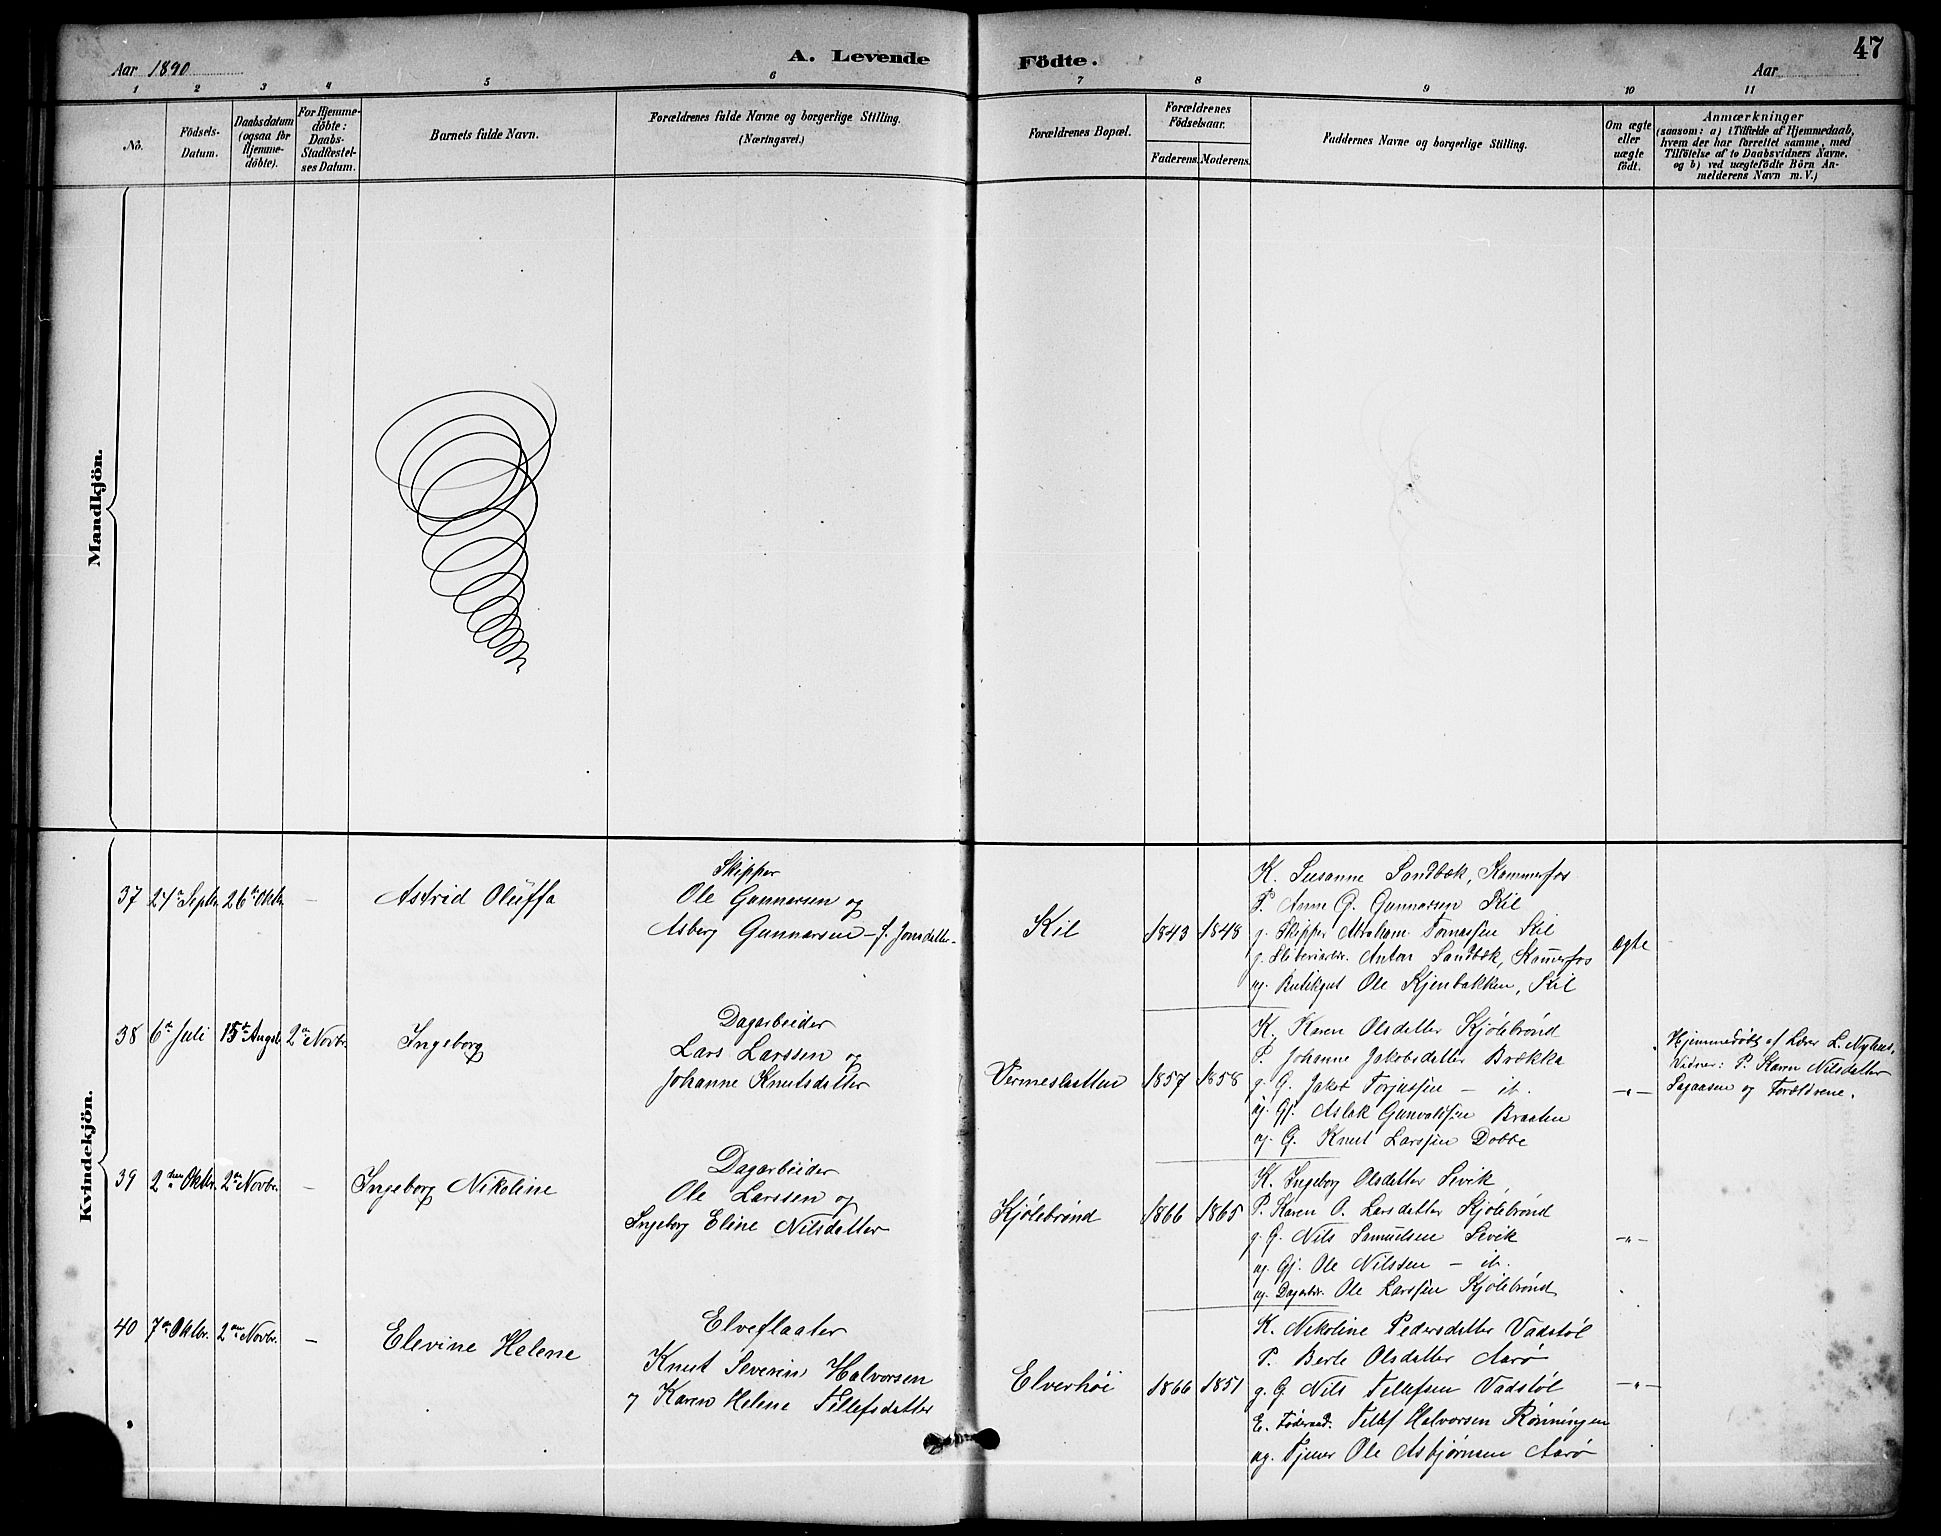 Aar 1890
A. Levende Födte.
Aar
47
1 2 3 4 5 6 7 8 9 10 11
No.
Födsels-Datum.
Daabsdatum (ogsaa for Hjemme-döbte).
For Hjemme-döbte: Daabs-Stadfæstel-ses Datum.
Barnets fulde Navn.
Forældrenes fulde Navne og borgerlige Stilling.
(Næringsvei.)
Forældrenes Bopæl.
Forældrenes Födselsaar.
Faderens. Moderens.
Faddernes Navne og borgerlige Stilling.
Om ægte eller uægte födt.
Anmærkninger
(saasom: a) i Tilfælde af Hjemmedaab,
hvem der har forrettet samme, med
Tilföielse af to Daabsvidners Navne.
og b) ved uægtefödte Börn An-
melderens Navn m. V.)
Mandkjön.
Kvindekjön.
37 27de Septbr 26de Oktbr —
Astrid Oluffa
Skipper
Ole Gunnarsen og
Asberg Gunnarsen – f. Jonsdatter
Kil
1843 1848
K. Susanne Sandbæk, Kammerfos
P. Anne G. Gunnarsen Kil
g. Skipper Abraham Tomassen Kil
g. Anton Sandbæk, Kamerfos
og. Ole Kjenbakken, Kil
ægte
38 6te Juli 15de August 2den Novbr.
Ingeborg
Dagarbeider
Lars Larssen og
Johanne Knutsdatter
Vermesletten
1857 1858
K. Karen Olsdatter Kjølebrønd
P. Johanne Jakobsdatter Brækka
g. G. Jakob Torjussen – ib.
og. Gj. Aslak Gunvaldsen Braaten
og. G. Knut Larssen Dobbe
—"—
Hjemmedøbt af Lærer L. Nyhus,
Vidner: P. Karen Nilsdatter
Sagaasen og Forældrene.
39 2den Oktbr. 2den Novbr. —
Ingeborg Nikoline
Dagarbeider
Ole Larssen og
Ingeborg Eline Nilsdatter
Kjølebrønd
1866 1865
K. Ingeborg Olsdatter Levik
P. Karen O. Larsdatter Kjølebrønd
g. G. Nils Samuelsen Levik
og. Gj. Ole Nilssen – ib.
og. Dagarbr. Ole Larssen Kjølebrønd
—"—
40 7de Oktbr. 2den Novbr. —
Elevine Helene
Elveflaater
Knut Severin Halvorsen
og Karen Helene Tellefsdatter
Elverhöi
1866 1851
K. Nikoline Pedersdatter Vadstøl
P. Berte Olsdatter Aarø
g. G. Nils Tellefsen Vadstøl
E. Føderaad. Tellef Halvorsen Rønningen
og. Tjener Ole Asbjørnsen Aarø
—"—